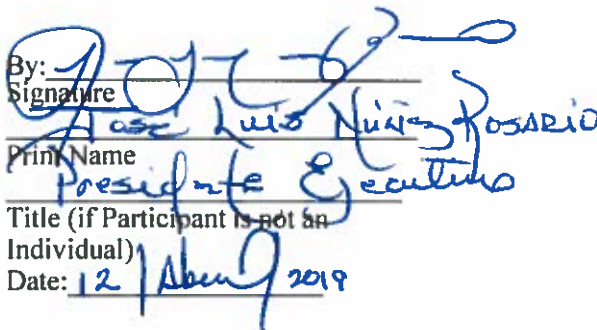 By:
Signature
José Luis Núñez Rosario
Print Name
Presidente Ejecutivo
Title (if Participant is not an
Individual)
Date: 12 / Abril / 2019